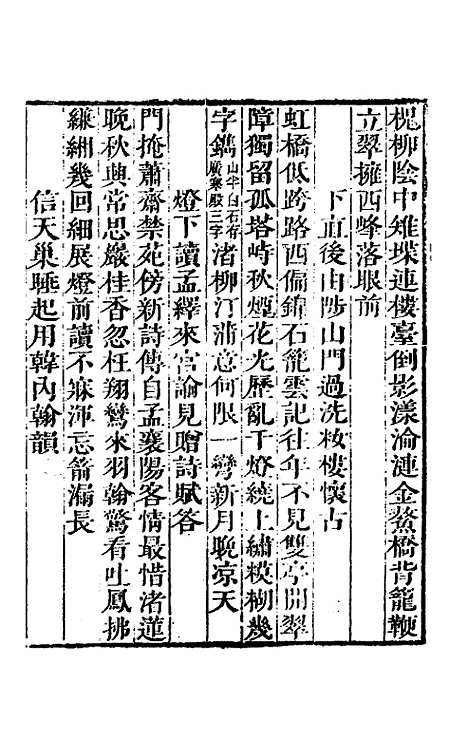 槐柳陰中雉堞連樓臺倒影漾淪漣金鰲橋背籠鞭
立翠擁西峰落眼前
下直後由陟山門過洗妝樓懷古
虹橋低跨路西偏錦石籠雲記往年不見雙亭開翠
障獨留孤塔峙秋煙花光歷亂千燈繞上繡模糊幾
字鐫山半白石存廣寒殿三字渚柳汀蒲意何限一彎新月晚凉天
燈下讀孟繹來宫諭見贈詩賦答
門掩蕭齋禁苑傍新詩傳自孟襄陽客情最惜渚蓮
晚秋典常思巖桂香忽枉翔鸞來羽翰驚看吐鳳拂
縑緗幾回細展燈前讀不寐渾忘箭漏長
信天巢睡起用韓內翰韻